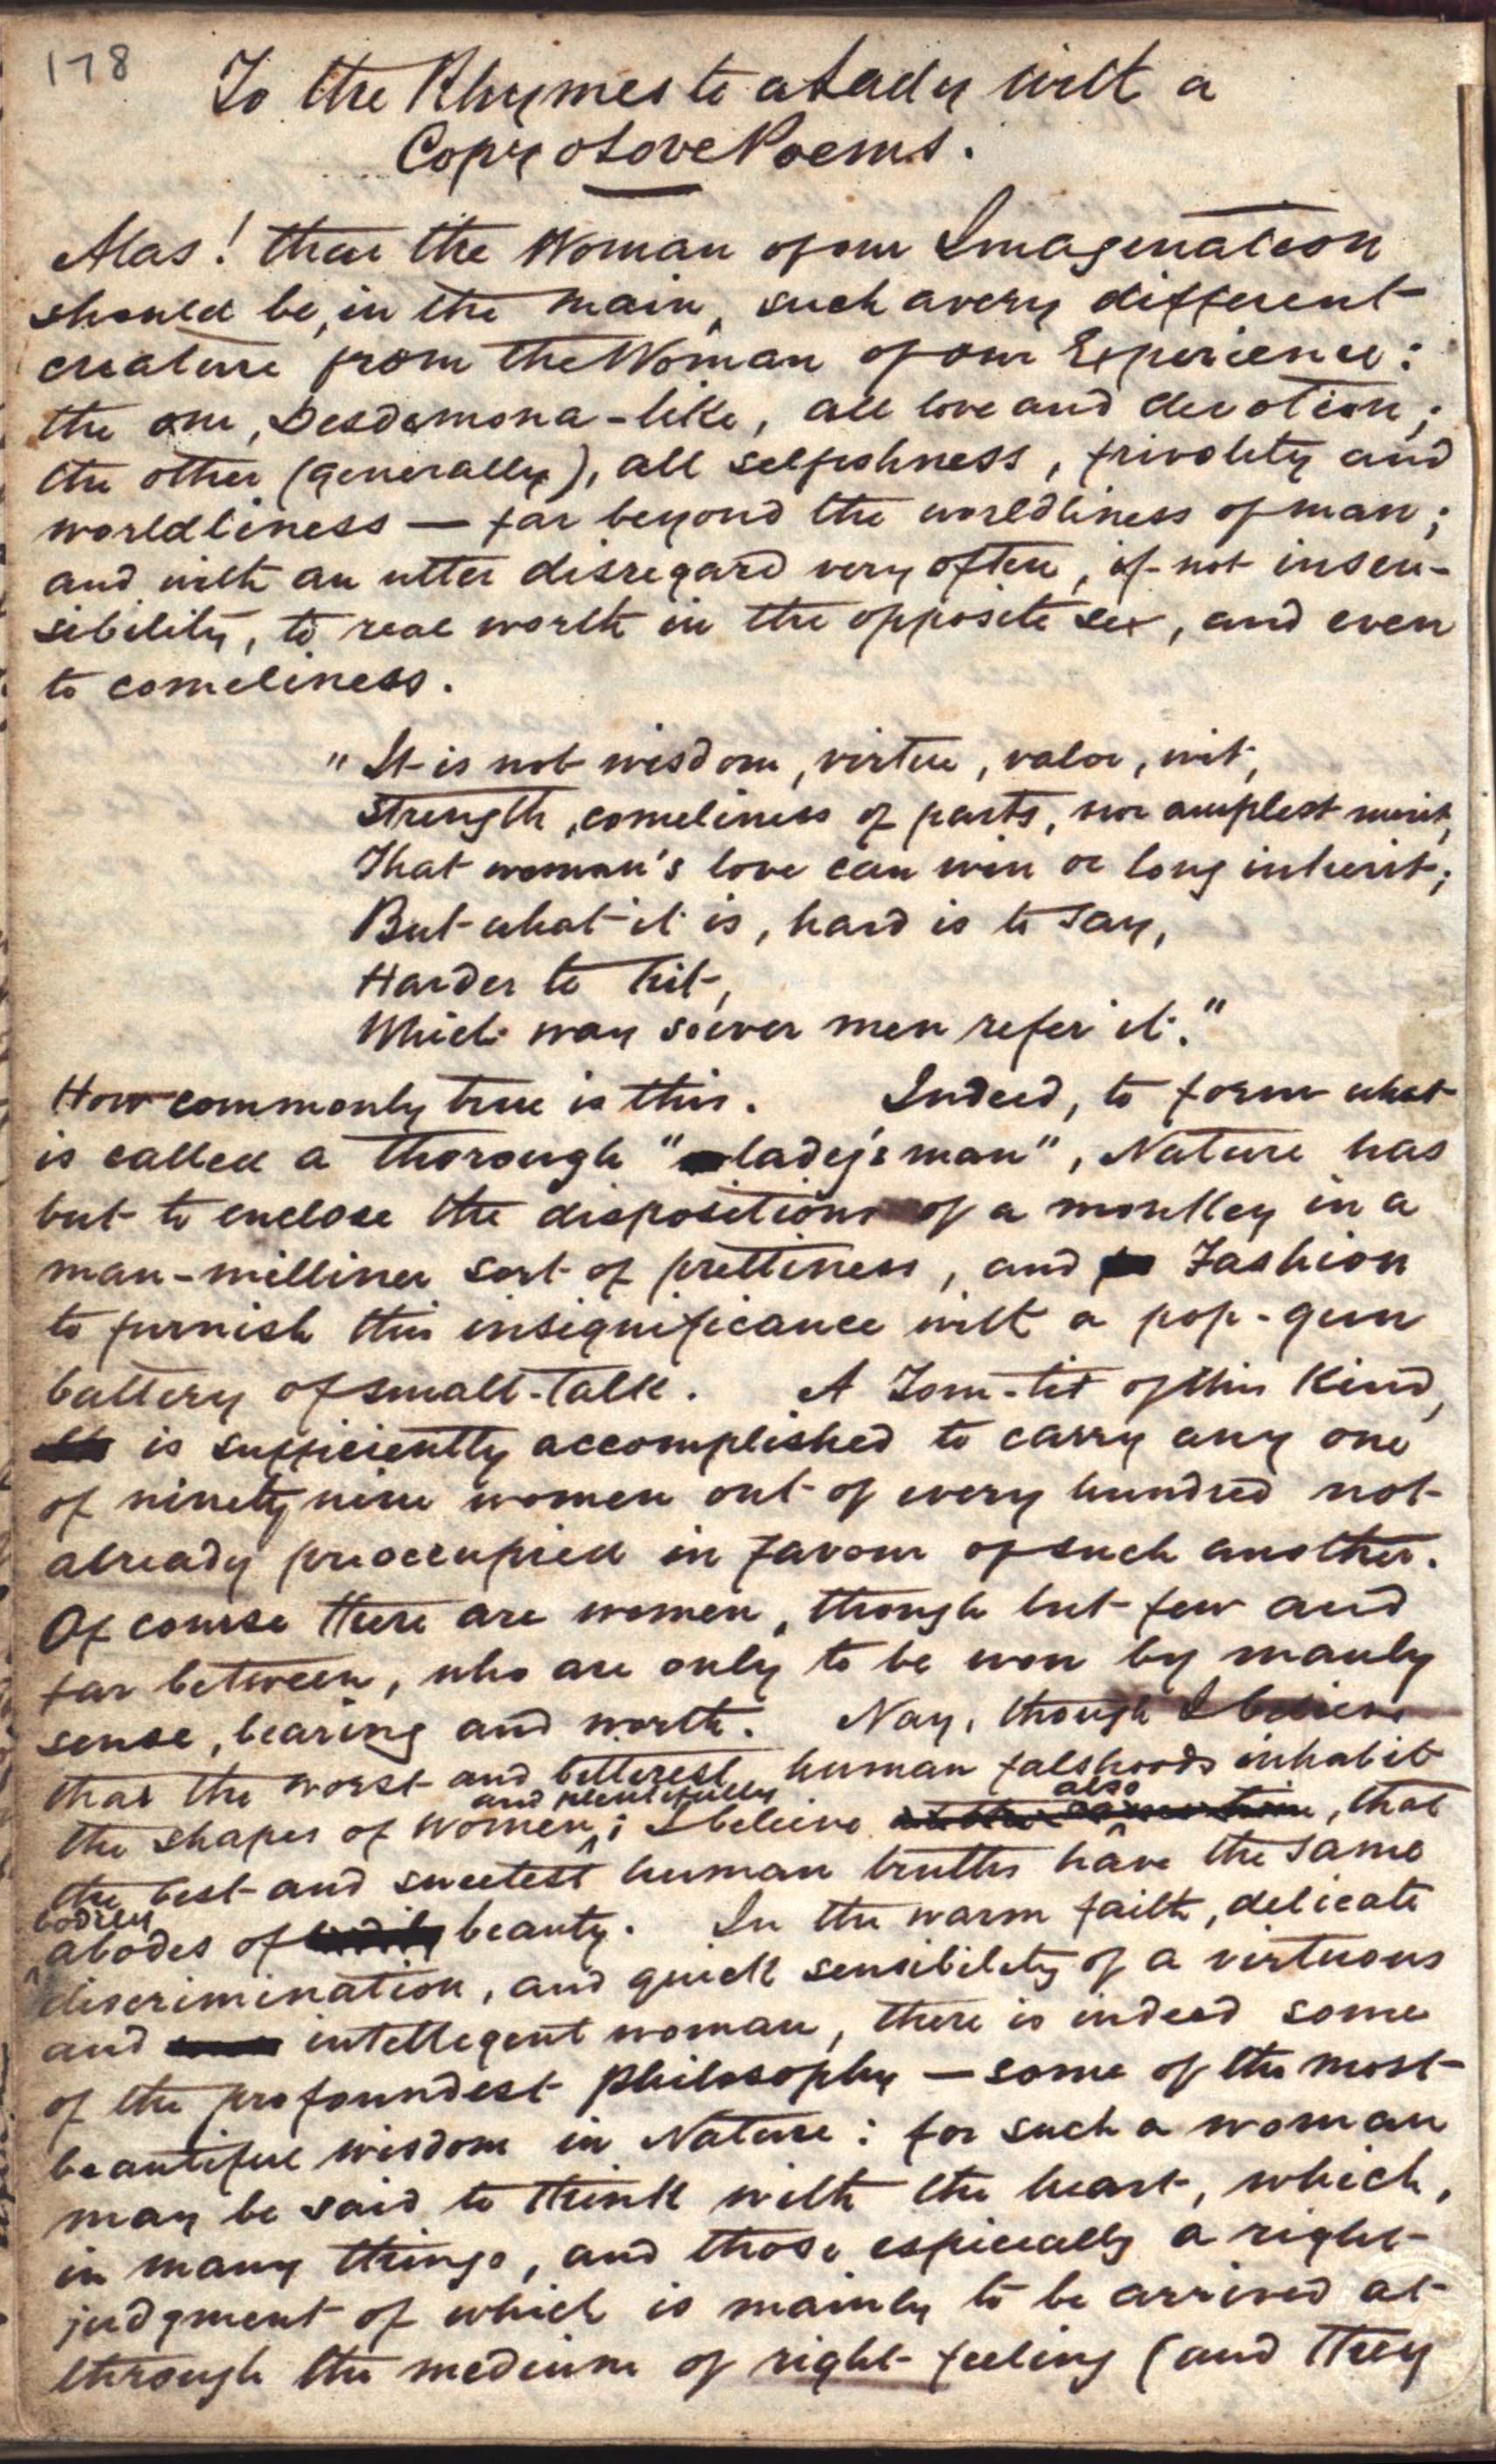 178
To the Rhymes to a Lady with a
Copy o Love Poems.
Alas! that the Woman of our Imagination
should be, in the main, such a very different
creature from the Woman of our Experience:
the one, Desdemona-like, all love and devotion;
the other (generally), all selfishness, frivolity and
worldliness — far beyond the worldliness of man;
and with an utter disregard very often, if not insen-
sibility, to real worth in the opposite sex, and even
to comeliness.
"It is not wisdom, virtue, valor, wit,
Strength, comeliness of parts, nor amplest merit,
That woman's love can win or long inherit;
But what it is, hard is to say,
Harder to hit,
Which way soever men refer it."
How commonly true is this. Indeed, to form what
is called a thorough "lady's man", Nature has
but to enclose the dispositions of a monkey in a
man-milliner sort of prettiness, and Fashion
to furnish this insignificance with a pop-gun
battery of small-talk. A Tom-tit of this kind,
is sufficiently accomplished to carry any one
of ninety nine women out of every hundred not
already preoccupied in favour of such another.
Of course there are women, though but few and
far between, who are only to be won by manly
sense, bearing and worth. Nay, though I believe
that the worst and bitterest human falshoods inhabit
and plentifully also
the shapes of women; I believe, that
the best and sweetest human truths have the same
bodily
abodes of beauty. In the warm faith, delicate
discrimination, and quick sensibility of a virtuous
and intellegent woman, there is indeed some
of the profoundest philosophy — some of the most
beautiful wisdom in Nature: for such a woman
may be said to think with the heart, which,
in many things, and those especially a right
judgment of which is mainly to be arrived at
through the medium of right feeling (and they